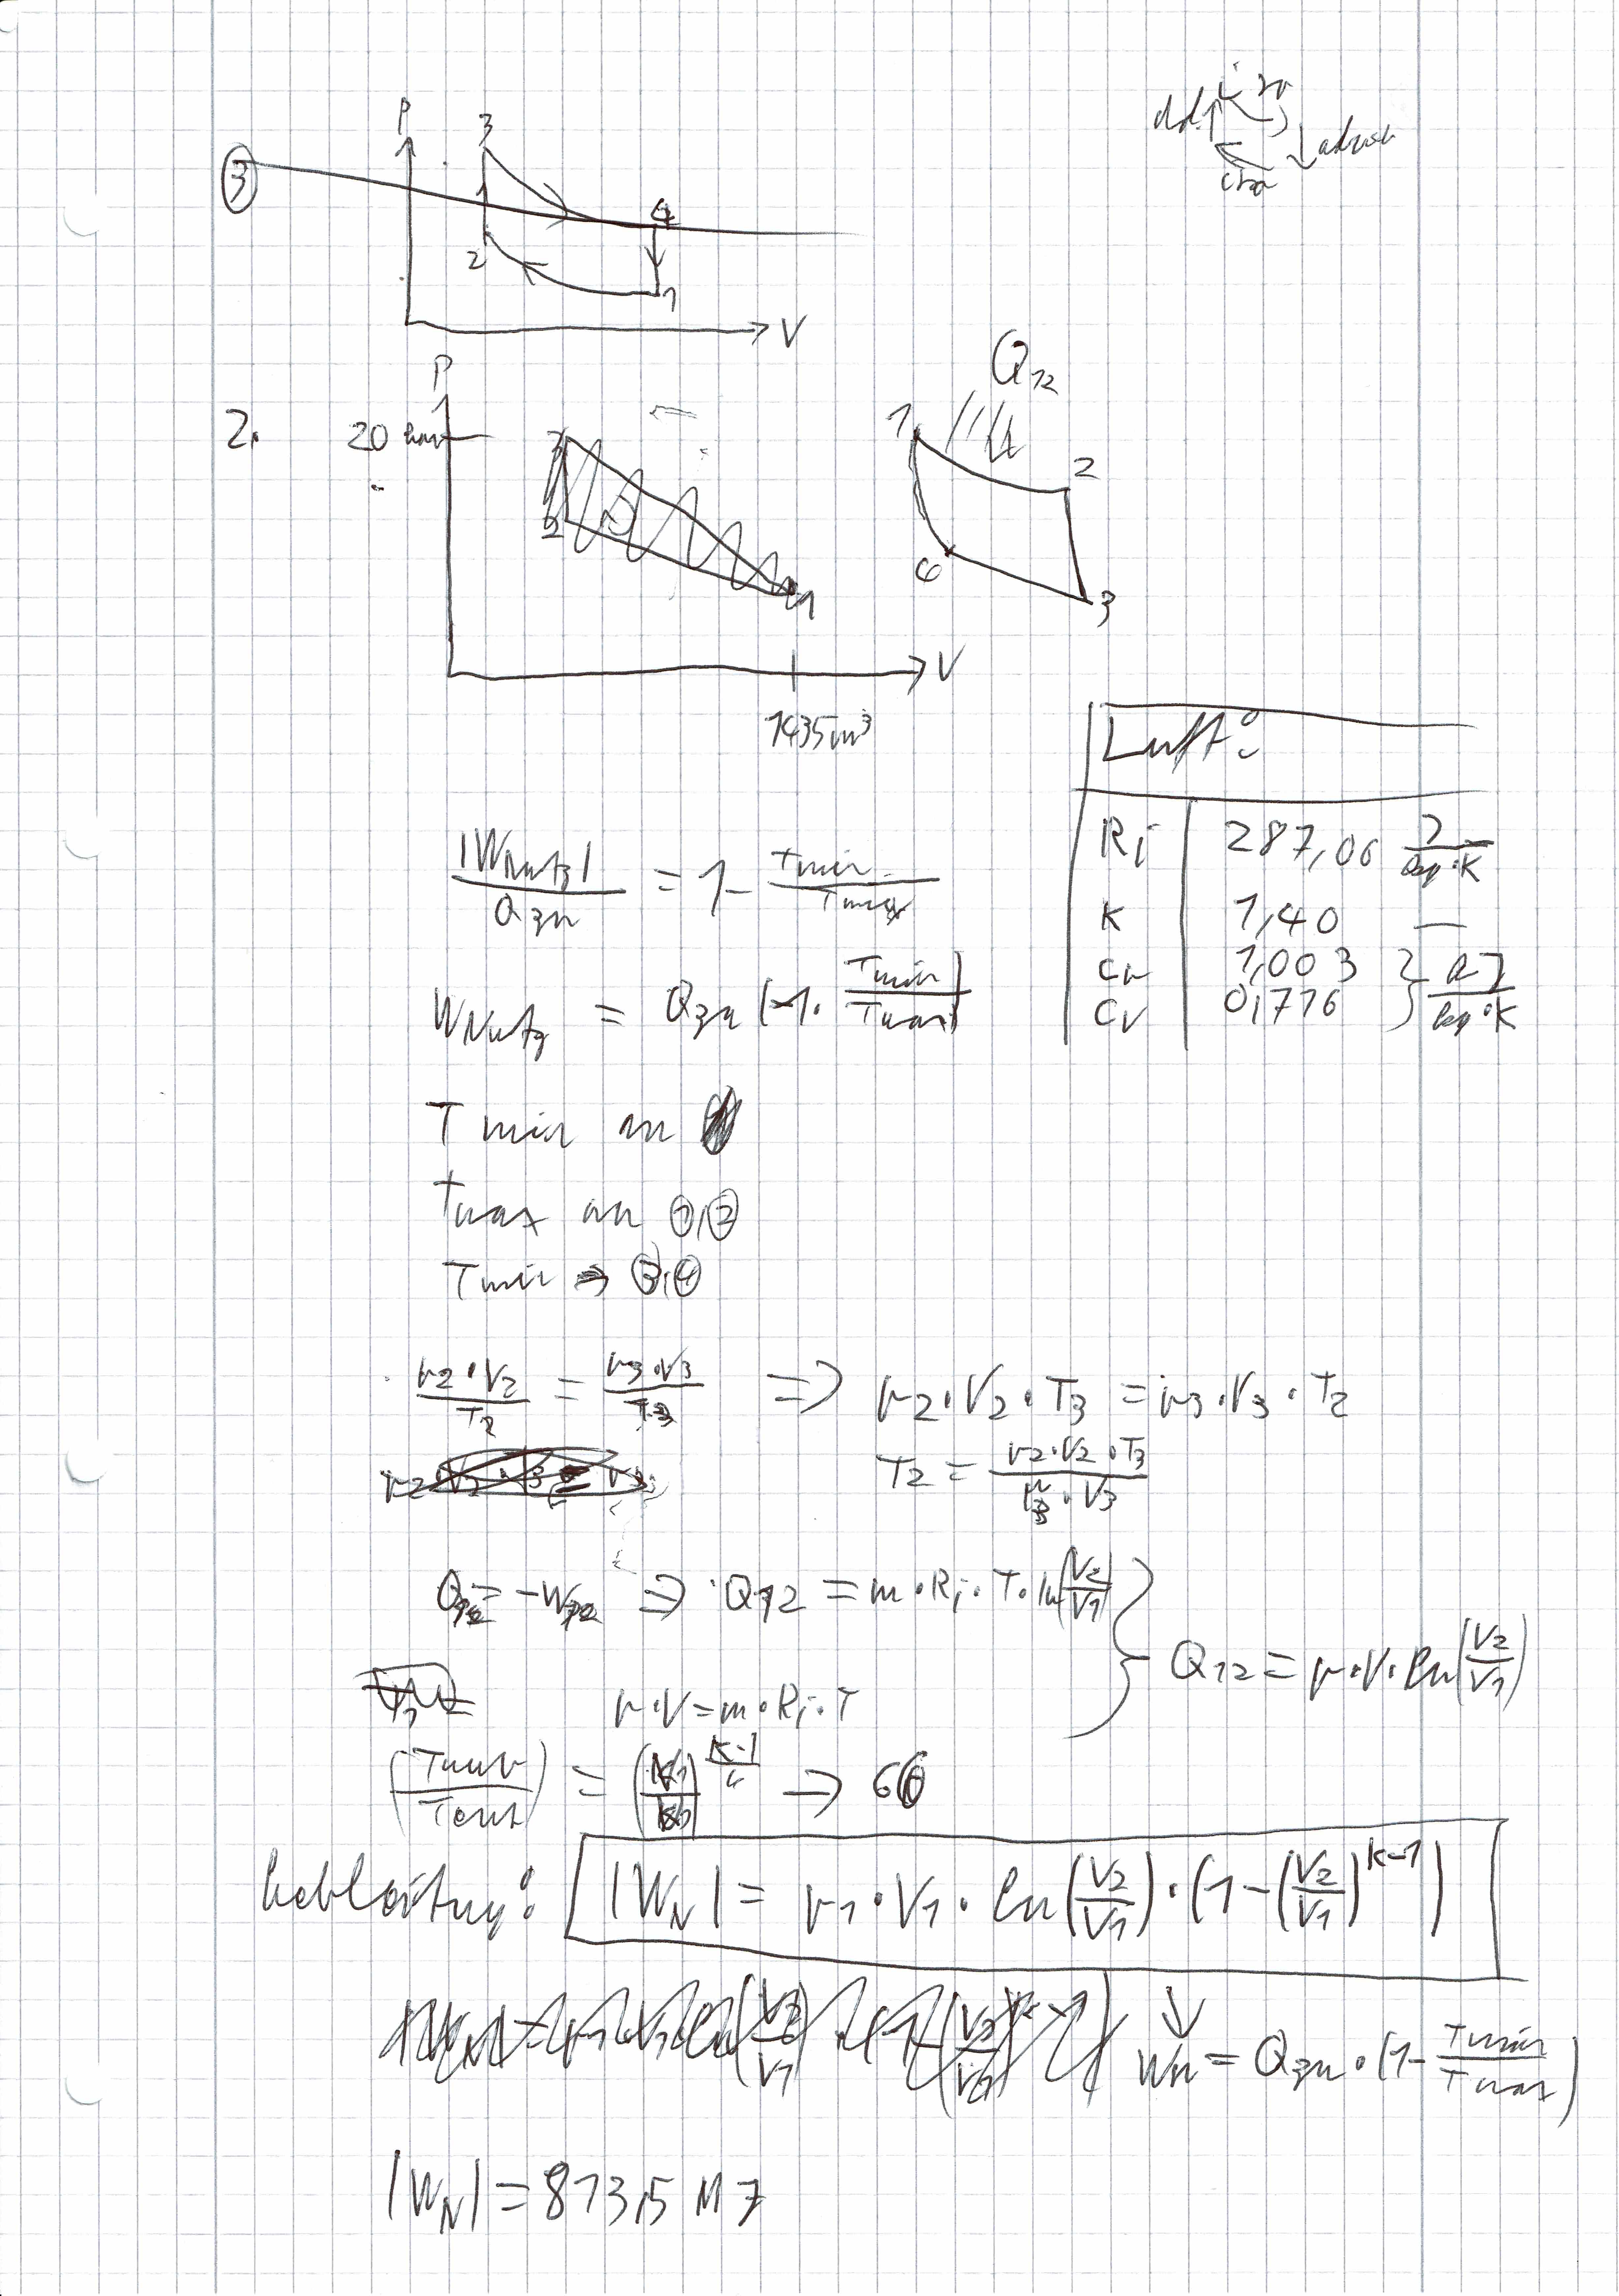 ③
P
3
4
2
1
V
2.
P
20 bar
3
2
1
V
1435m³
Q₁₂
1
2
4
3
Luft:
Ri 287,06 J/kg·K
κ 1,40 —
cp 1,003
cv 0,716 } kJ/kg·K
|WNutz|/Qzu = 1 - Tmin/Tmax
WNutz = Qzu (1- Tmin/Tmax)
Tmin an
Tmax an ①,②
Tmin ⇒ ③,④
p2·V2/T2 = p3·V3/T3 ⇒ p2·V2·T3 = p3·V3·T2
T2 = p2·V2·T3/p3·V3
Q12 = -W12 ⇒ Q12 = m·Ri·T·ln(V2/V1)
p·V = m·Ri·T
} Q12 = p·V·ln(V2/V1)
|WN| = p1·V1·ln(V2/V1)·(1-(V2/V1)^κ-1)
↓
WN = Qzu·(1- Tmin/Tmax)
|WN| = 873,5 MJ